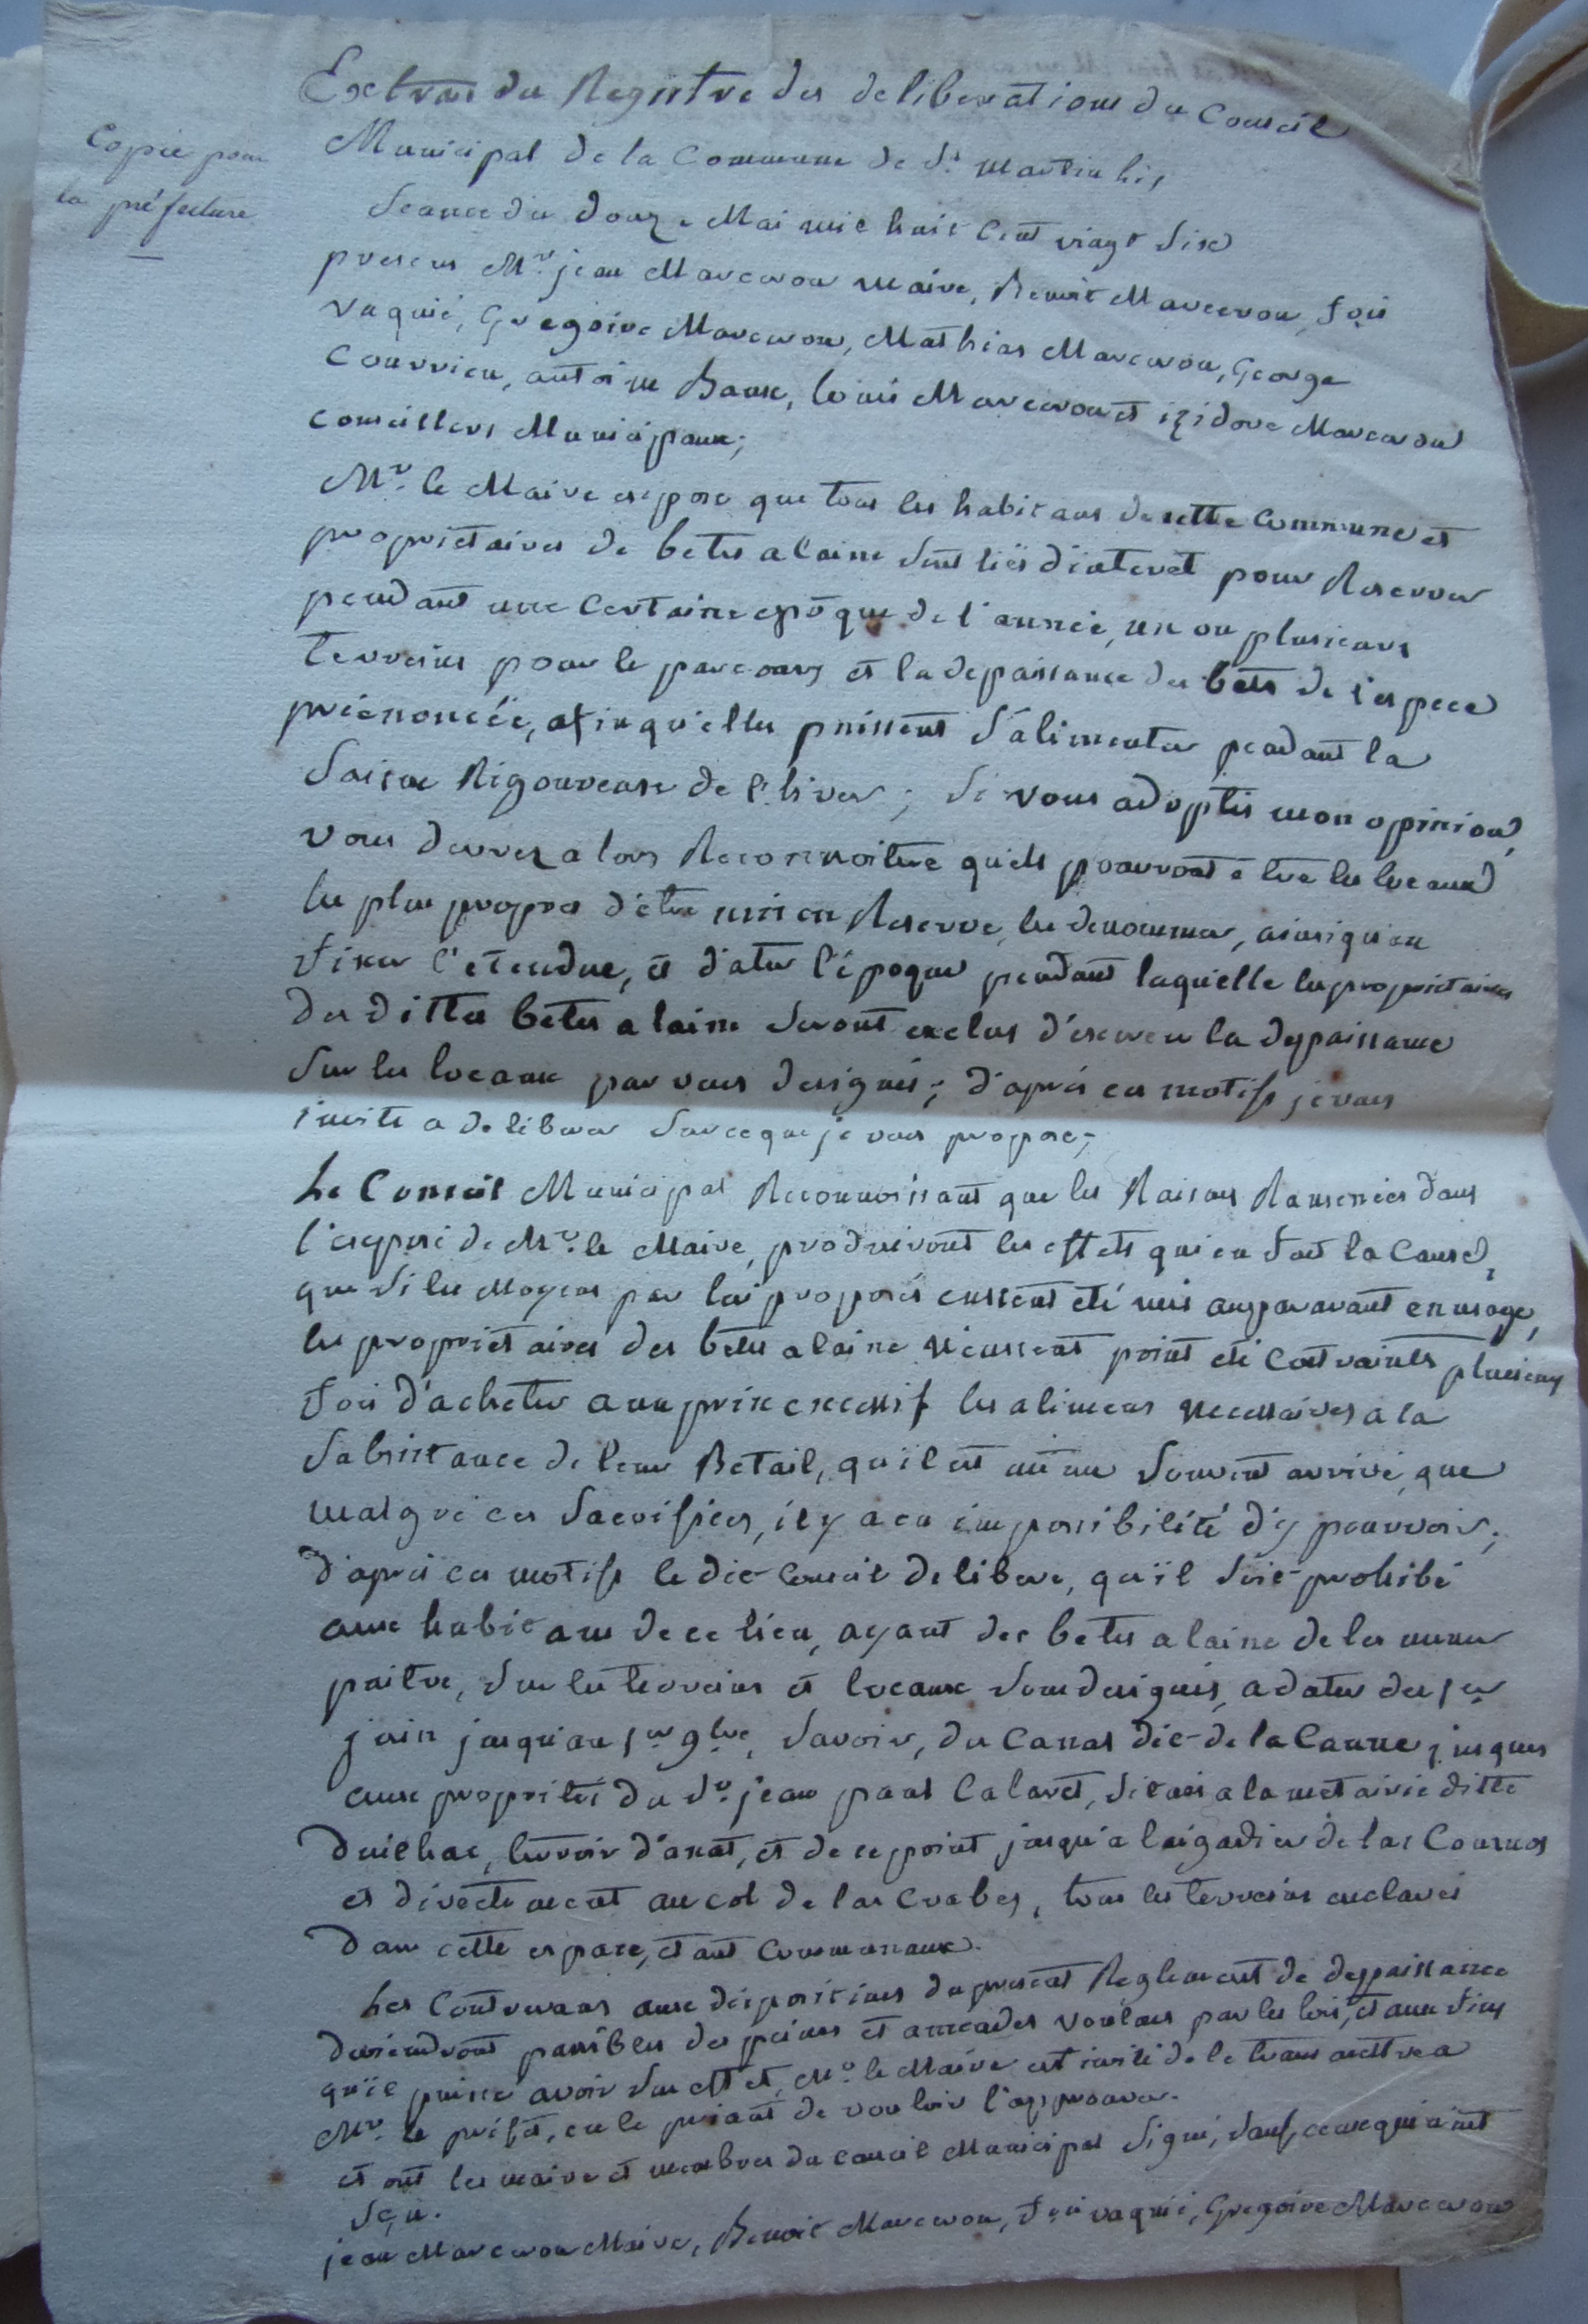 Copie pour
la préfecture
Extrait du Registre des deliberations du Conseil
Municipal de la Commune de St. martin lis
Seance du douze Mai mil huit Cent vingt Six
presens Mr. jean Marcerou maire, Benoit Marcerou, foix
vaquié, Gregoire Marcerou, Mathias Marcerou, George
Courrieu, antoine Baux, louis Marcerou et izidore Marcerou
conseillers Municipaux;
Mr. le Maire expose que tous les habitans de cette Commune et
proprietaires de betes a laine Sont liés d'interet pour Reserver
pendant une Certaine epoque de l'année, un ou plusieurs
terrains pour le parcours et la depaissance des betes de l'espece
prénoncéé, afin qu'elles puissent S'alimenter pendant la
Saison Rigoureuse de l'hiver; Si vous adoptés mon opinion,
vous devrez alors Reconnoitre quels pourront être les locaux
les plus propres d'etre mis en Reserve, les denommer, ainsi qu'en
fixer l'etendue, et dater l'époque pendant laquelle les proprietaires
des dittes betes a laine Seront exclus d'exercer la depaissance
Sur les locaux par vous designés; d'après ces motifs je vous
invite a deliberer Sur ce que je vous propose;
Le Conseil Municipal Reconnoissant que les Raisons Ramenées dans
l'exposé de Mr. le Maire, produiront les effets qui en font la Cause,
que Si les Moyens par lui proposés eussent eté mis auparavant en usage,
les proprietaires des betes a laine n'eussent point eté Contraints plusieurs
fois d'acheter a un prix excessif les alimens necessaires a la
Subsistance de leur Betail, qu'il est même Souvent arrivé, que
malgré ces Sacrifices, il y a eu impossibilité d'y pourvoir;
d'après ces motifs le dit Conseil delibere, qu'il Soit prohibé
aux habitans de ce lieu, ayant des betes a laine de les mener
paitre, Sur les terrains et locaux Sous designés, a dater du 1er
juin jusqu'au 1er 9bre, Savoir, du Canal dit de la Caune jusques
aux proprités du Sr. jean paul Calavet, Situés a la metairie ditte
dailhac, terroir d'axat, et de ce point jusqu'a laigadier de las Coumos
et directement au col de las Crabes, tous les terrains enclavés
dans cette espace, etant Communaux.
Les Contrevenans aux dispositions du present Reglement de depaissance
deviendront passibles des peines et amendes voulues par les lois, et aux fins
qu'il puisse avoir Son effet, Mr. le Maire est invité de le transmettre a
Mr. le préfet, en le priant de vouloir l'approuver.
et ont les maire et membres du conseil Municipal Signé, Sauf ceux qui n'ont
Sçu.
jean Marcerou Maire, Benoit Marcerou, foix vaquié, Gregoire Marcerou